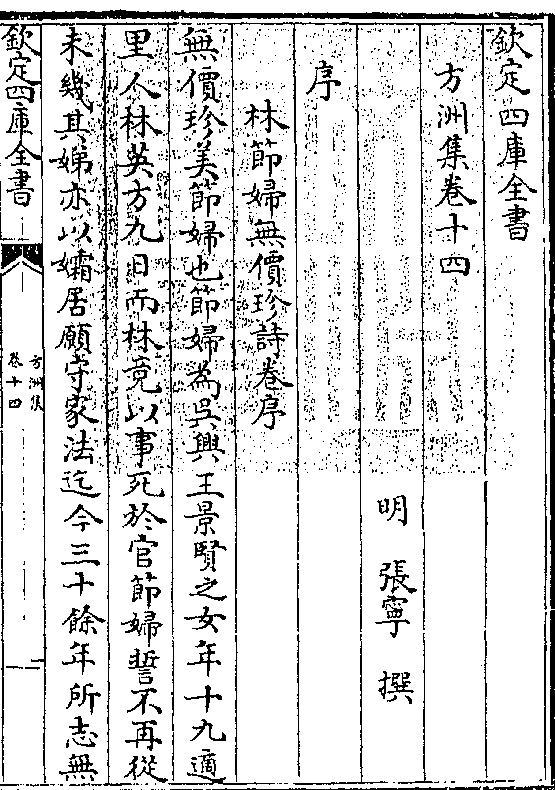 欽定四庫全書
方洲集卷十四
明 張寧 撰
序
林節婦無價珍詩卷序
無價珍美節婦也節婦為吳興王景賢之女年十九適
里人林英方九日而林竟以事死於官節婦誓不再從
未幾其娣亦以孀居願守家法迄今三十餘年所志無
欽定四庫全書
方洲集
卷十四
一